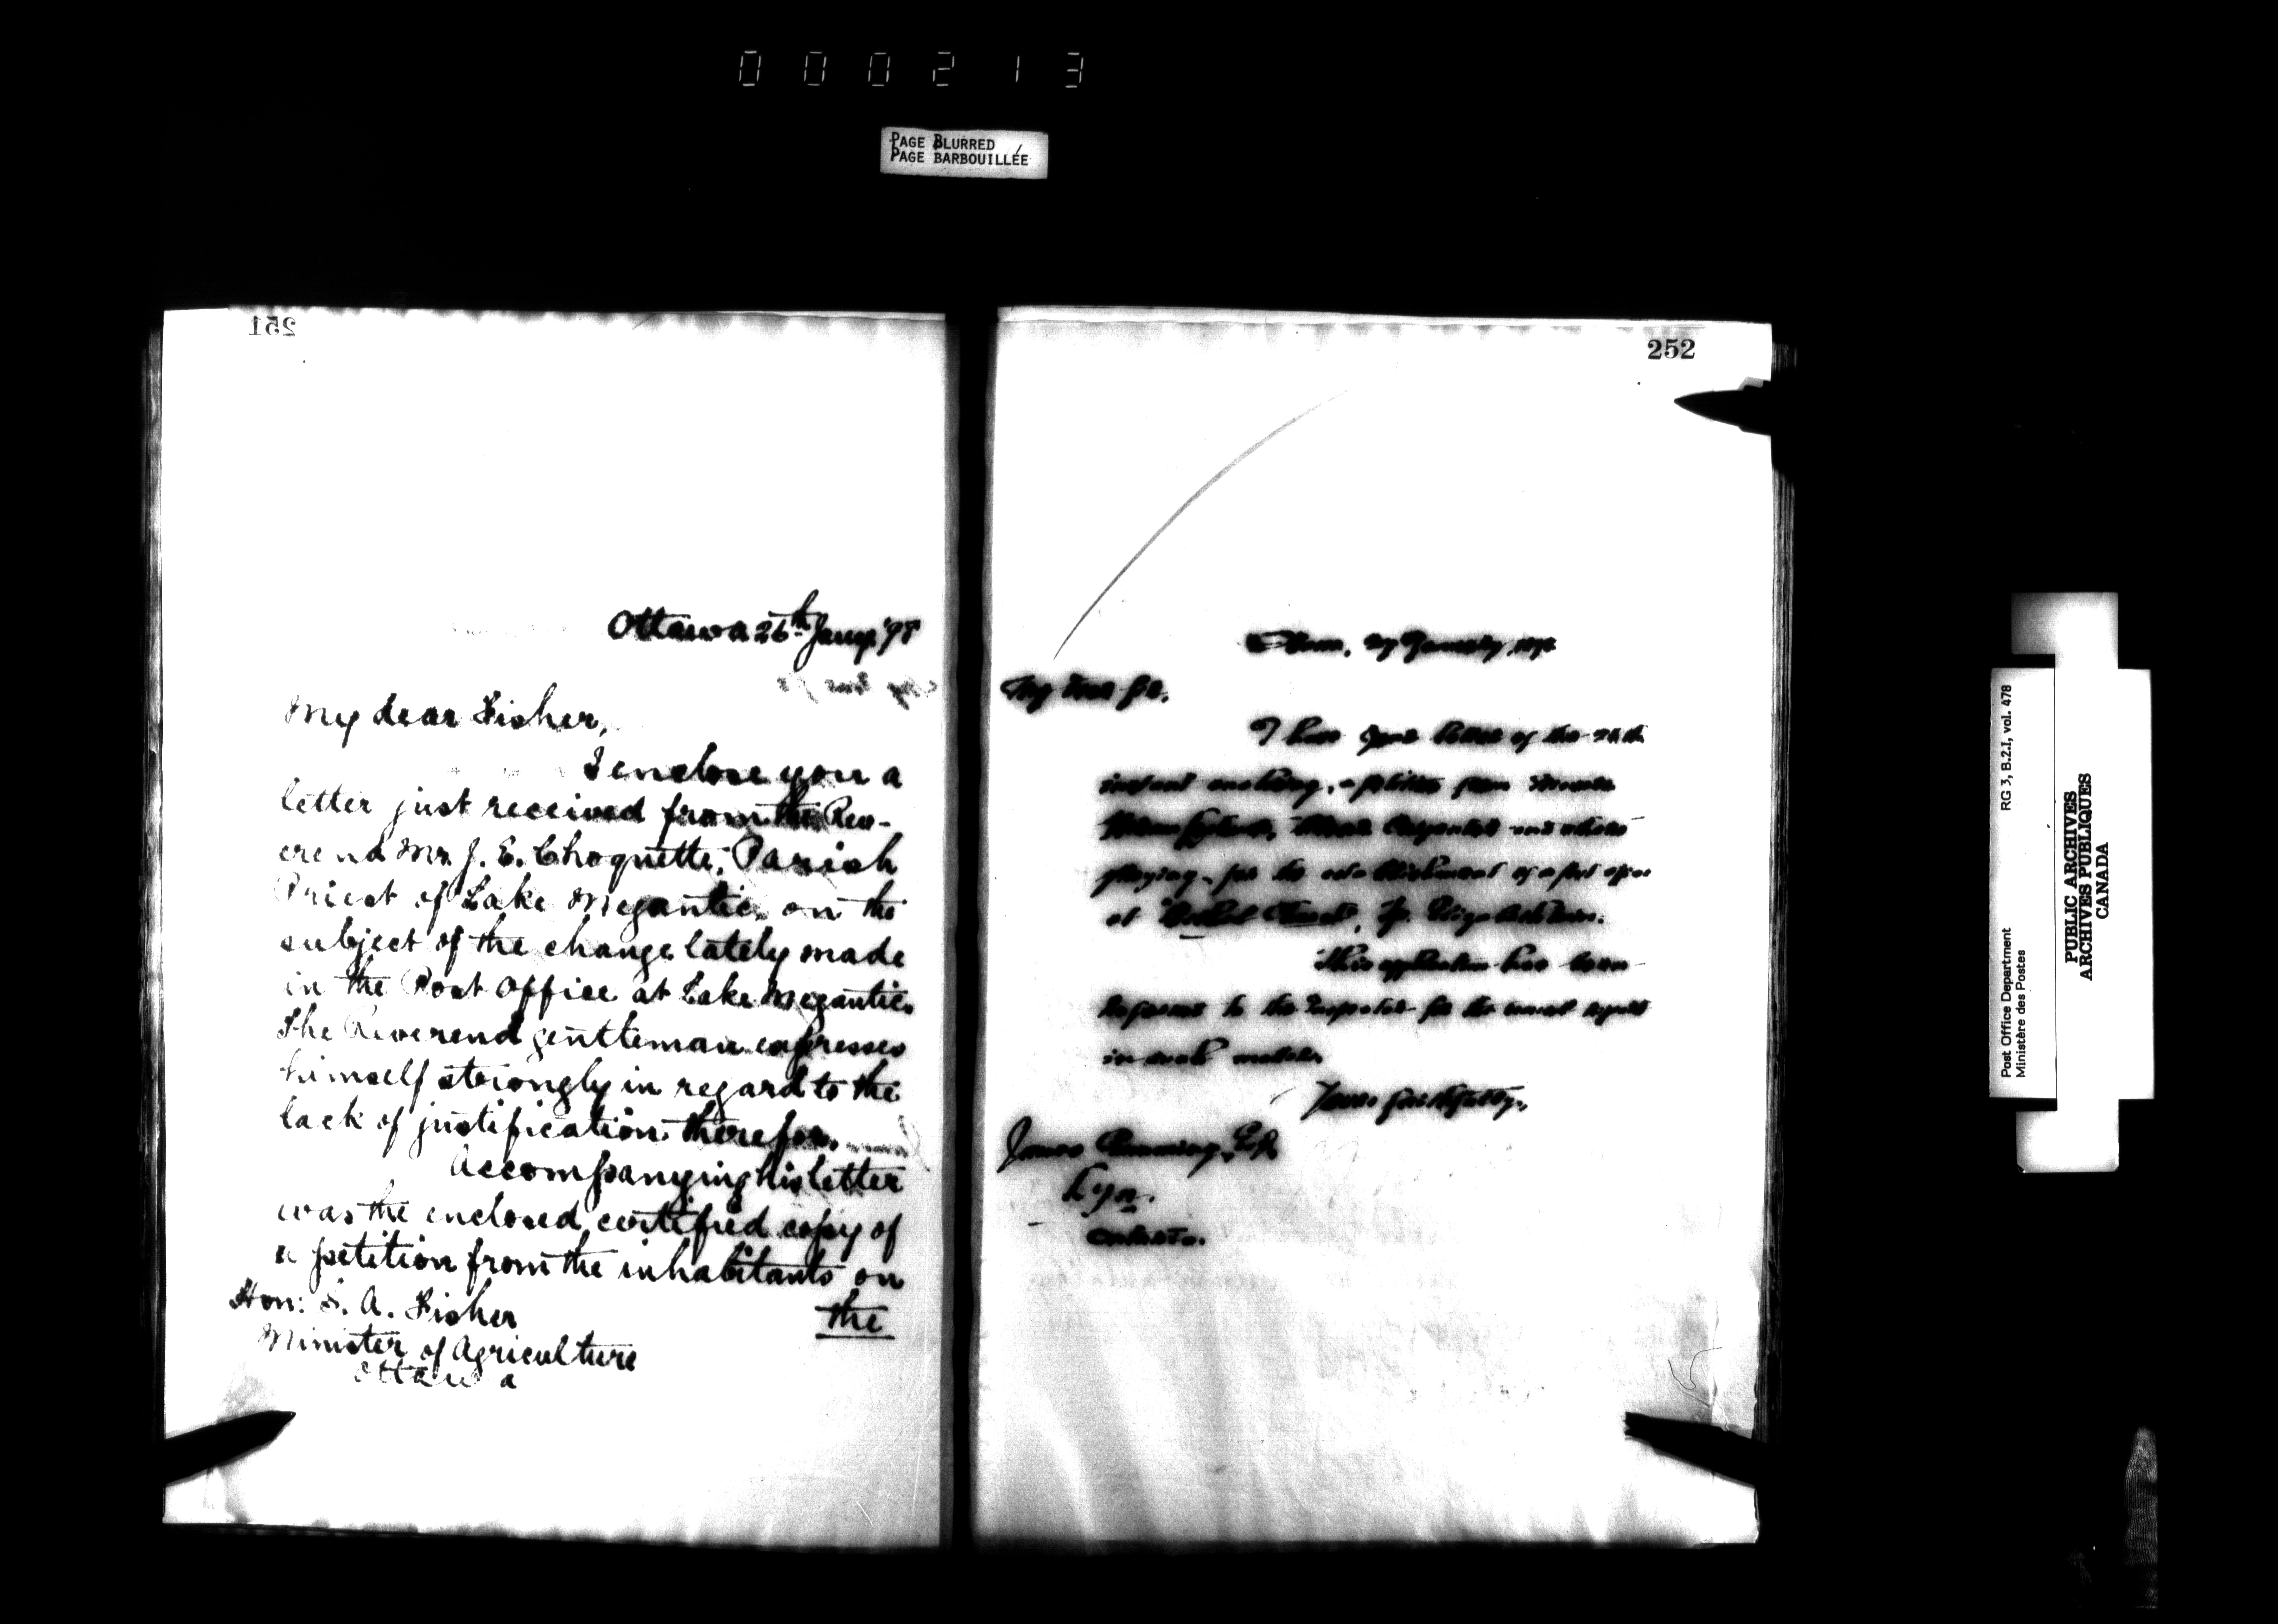 000213
PAGE BLURRED
PAGE BARBOUILLÉE
251
Ottawa 26th Jany. '98
My dear Fisher,
I enclose you a
letter just received from the Rev-
erend Mr. J. E. Choquette, Parish
Priest of Lake Megantic, on the
subject of the change lately made
in the Post Office at Lake Megantic.
The Reverend gentleman expresses
himself strongly in regard to the
lack of justification therefor.
Accompanying his letter
was the enclosed certified copy of
a petition from the inhabitants on
the
Hon: S. A. Fisher
Minister of Agriculture
Ottawa
252
January,
My dear Sir,
I have your letter of the
instant enclosing a petition from
and others
praying for the establishment of a post office
at
This application has been
referred to the Inspector for the usual report
in such matters.
Yours faithfully,
James Cumming, Esq.
Lyn.
Ontario.
Post Office Department
Ministère des Postes
RG 3, B.2.I, vol. 478
PUBLIC ARCHIVES
ARCHIVES PUBLIQUES
CANADA